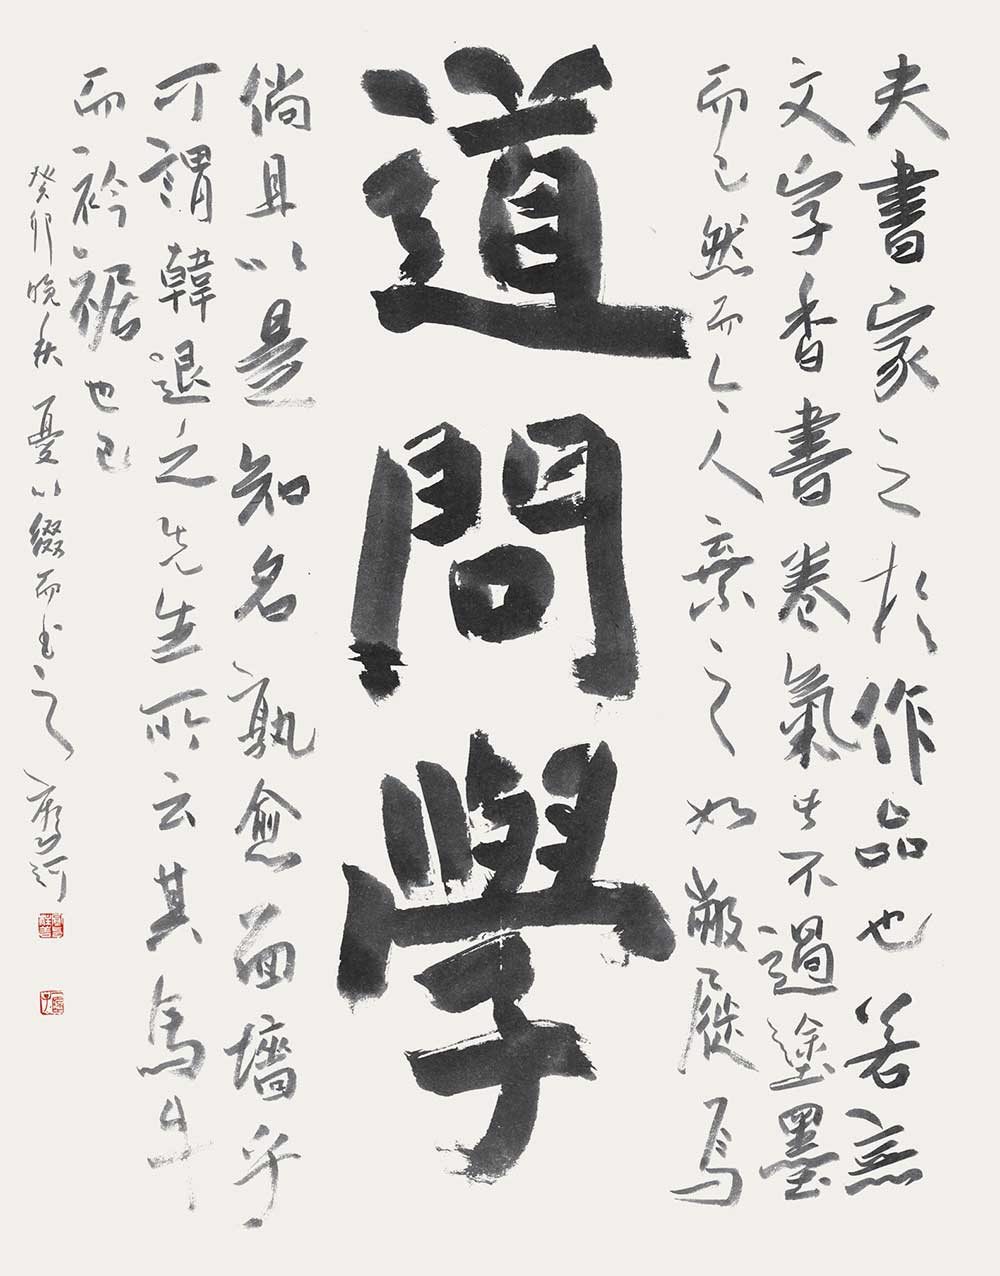 夫書家之於作品也若無
文字香書卷氣者不過塗墨
而已然而今人棄之如敝屣焉
道問學
倘且以是知名孰愈面墻乎
可謂韓退之先生所云其馬牛
而衿裾也已
癸卯晚秋憂以綴而書之